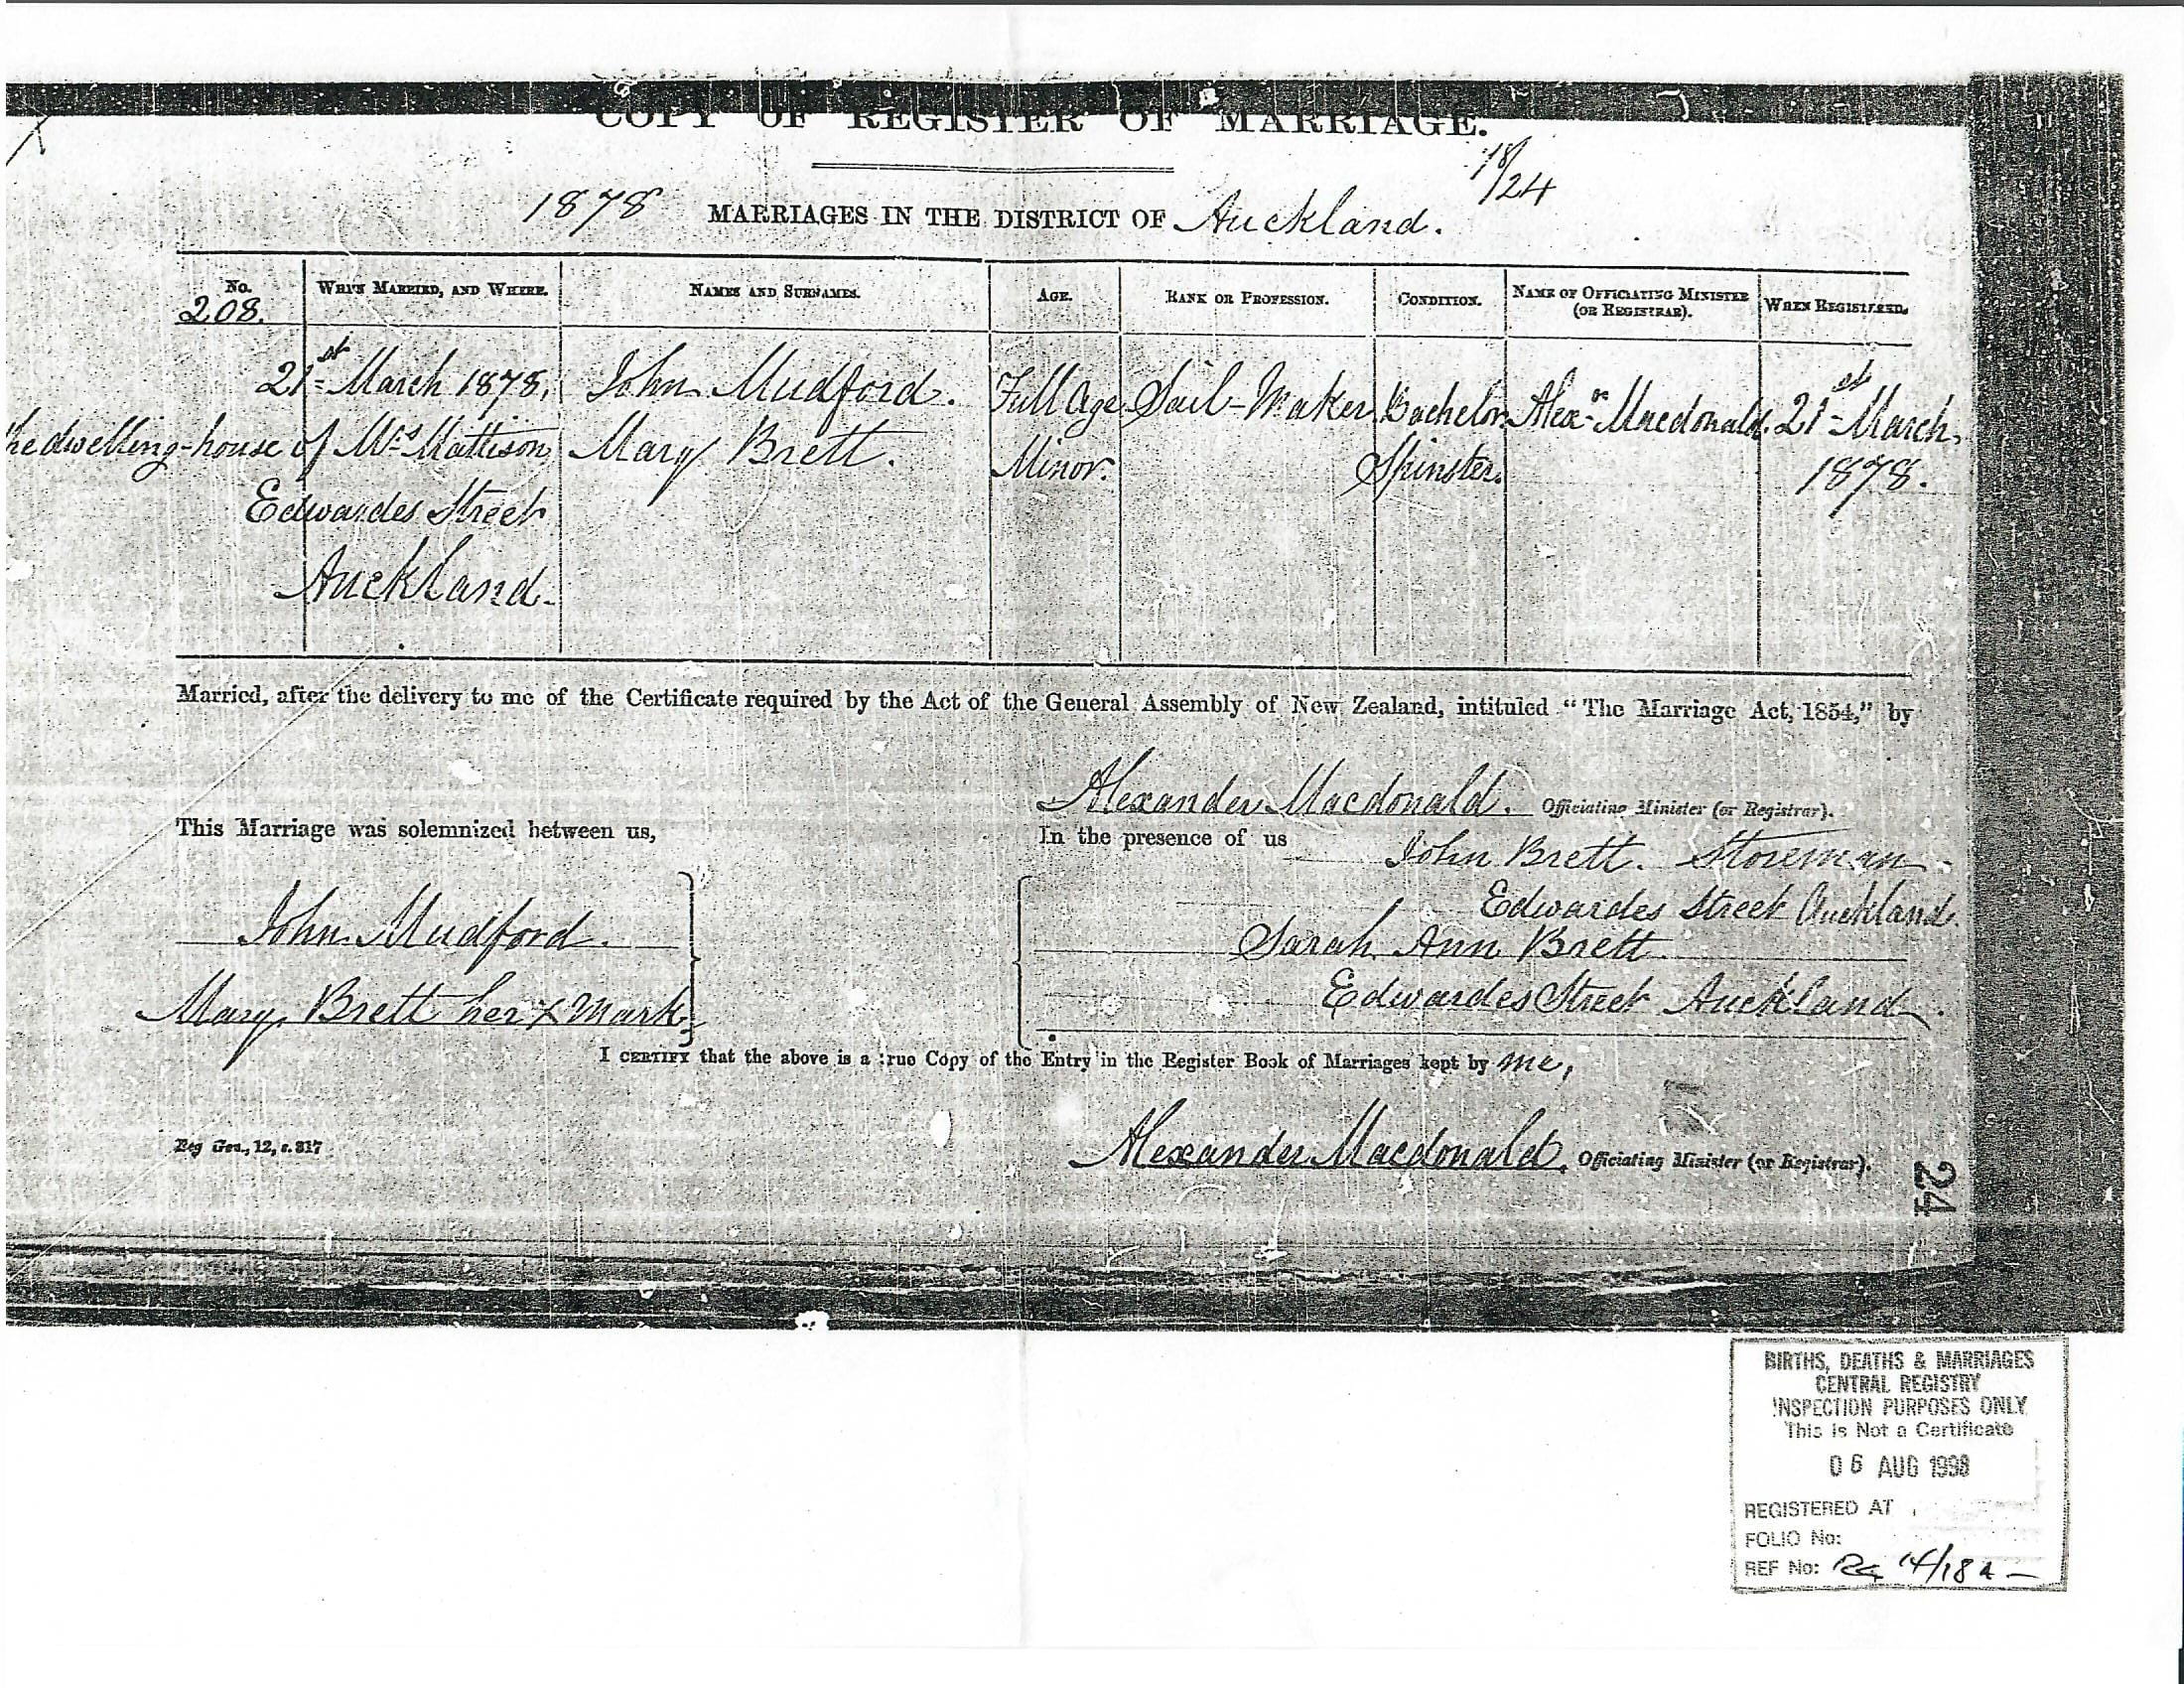 COPY OF REGISTER OF MARRIAGE.
18/24
1878 MARRIAGES IN THE DISTRICT OF Auckland.
No. WHEN MARRIED, AND WHERE. NAMES AND SURNAMES. AGE. RANK OR PROFESSION. CONDITION. NAME OF OFFICIATING MINISTER (OR REGISTRAR). WHEN REGISTERED.
208.
21st March 1878, John Mudford. Full Age Sail-Maker Bachelor Alexr Macdonald. 21st March,
he dwelling-house of Mrs Mattison Mary Brett. Minor. Spinster. 1878.
Edwardes Street
Auckland.
Married, after the delivery to me of the Certificate required by the Act of the General Assembly of New Zealand, intituled "The Marriage Act, 1854," by
Alexander Macdonald. Officiating Minister (or Registrar).
This Marriage was solemnized between us,
In the presence of us John Brett. Storeman
Edwardes Street Auckland.
John Mudford.
Sarah Ann Brett
Mary Brett her x mark
Edwardes Street Auckland.
I CERTIFY that the above is a true Copy of the Entry in the Register Book of Marriages kept by me,
Reg Gen., 12, s. 317
Alexander Macdonald. Officiating Minister (or Registrar).
24
BIRTHS, DEATHS & MARRIAGES
CENTRAL REGISTRY
INSPECTION PURPOSES ONLY
This is Not a Certificate
06 AUG 1998
REGISTERED AT
FOLIO No:
REF No: 14/18